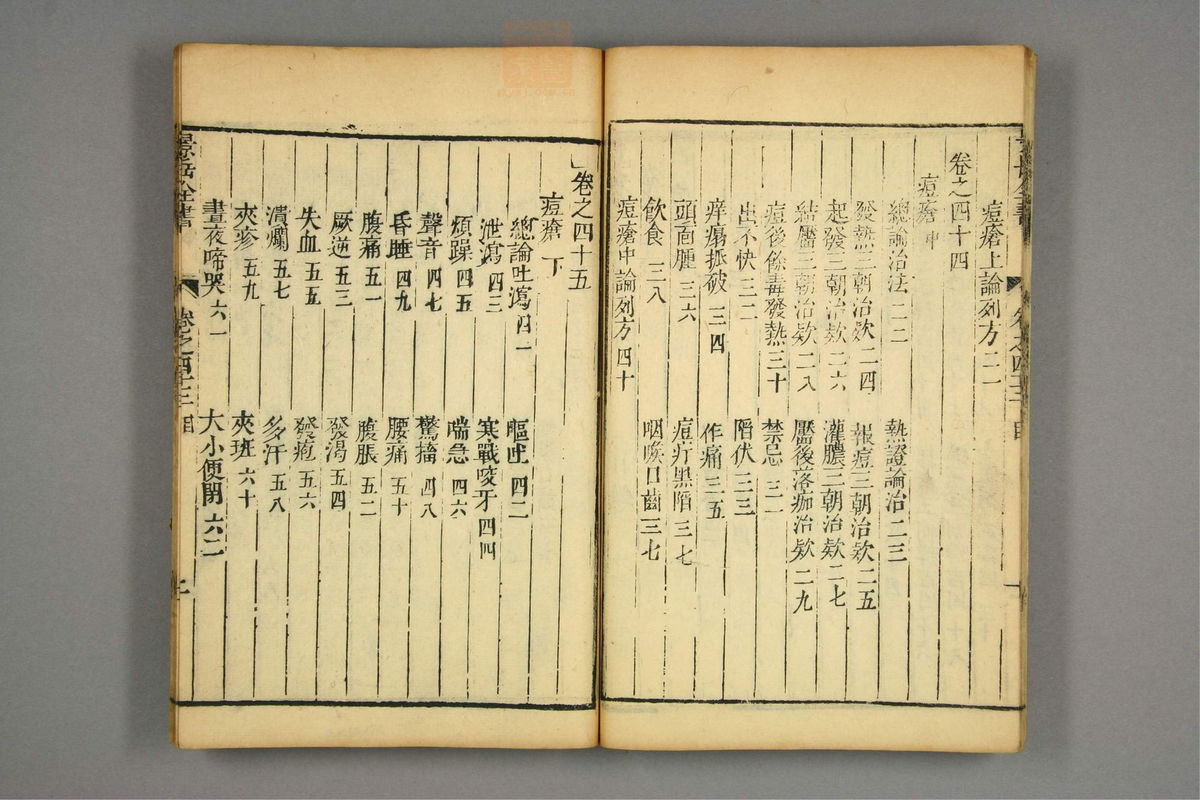 痘瘡上論列方二一
卷之四十四
痘瘡中
總論治法二二 熱證論治二三
發熱三朝治欵二四 報痘三朝治欵二五
起發三朝治欵二六 灌膿三朝治欵二七
結靨三朝治欵二八 靨後落痂治欵二九
痘後餘毒發熱三十 禁忌三一
出不快三二 陷伏三三
痒瘍抓破三四 作痛三五
頭面腫三六 痘疔黑陷三七
飲食三八 咽喉口齒三七
痘瘡中論列方四十
卷之四十五
痘瘡下
總論吐瀉四一 嘔吐四二
泄瀉四三 寒戰咬牙四四
煩躁四五 喘急四六
聲音四七 驚搐四八
昏睡四九 腰痛五十
腹痛五一 腹脹五二
厥逆五三 發渴五四
失血五五 發疱五六
潰爛五七 多汗五八
夾疹五九 夾班六十
晝夜啼哭六一 大小便閉六二
景岳全書 卷之四十三 目